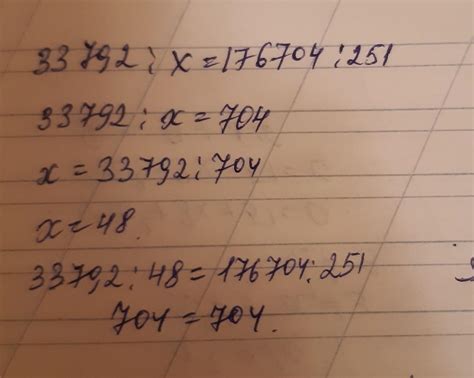 33792 : x = 176704 : 251
33792 : x = 704
x = 33792 : 704
x = 48.
33792 : 48 = 176704 : 251
704 = 704.